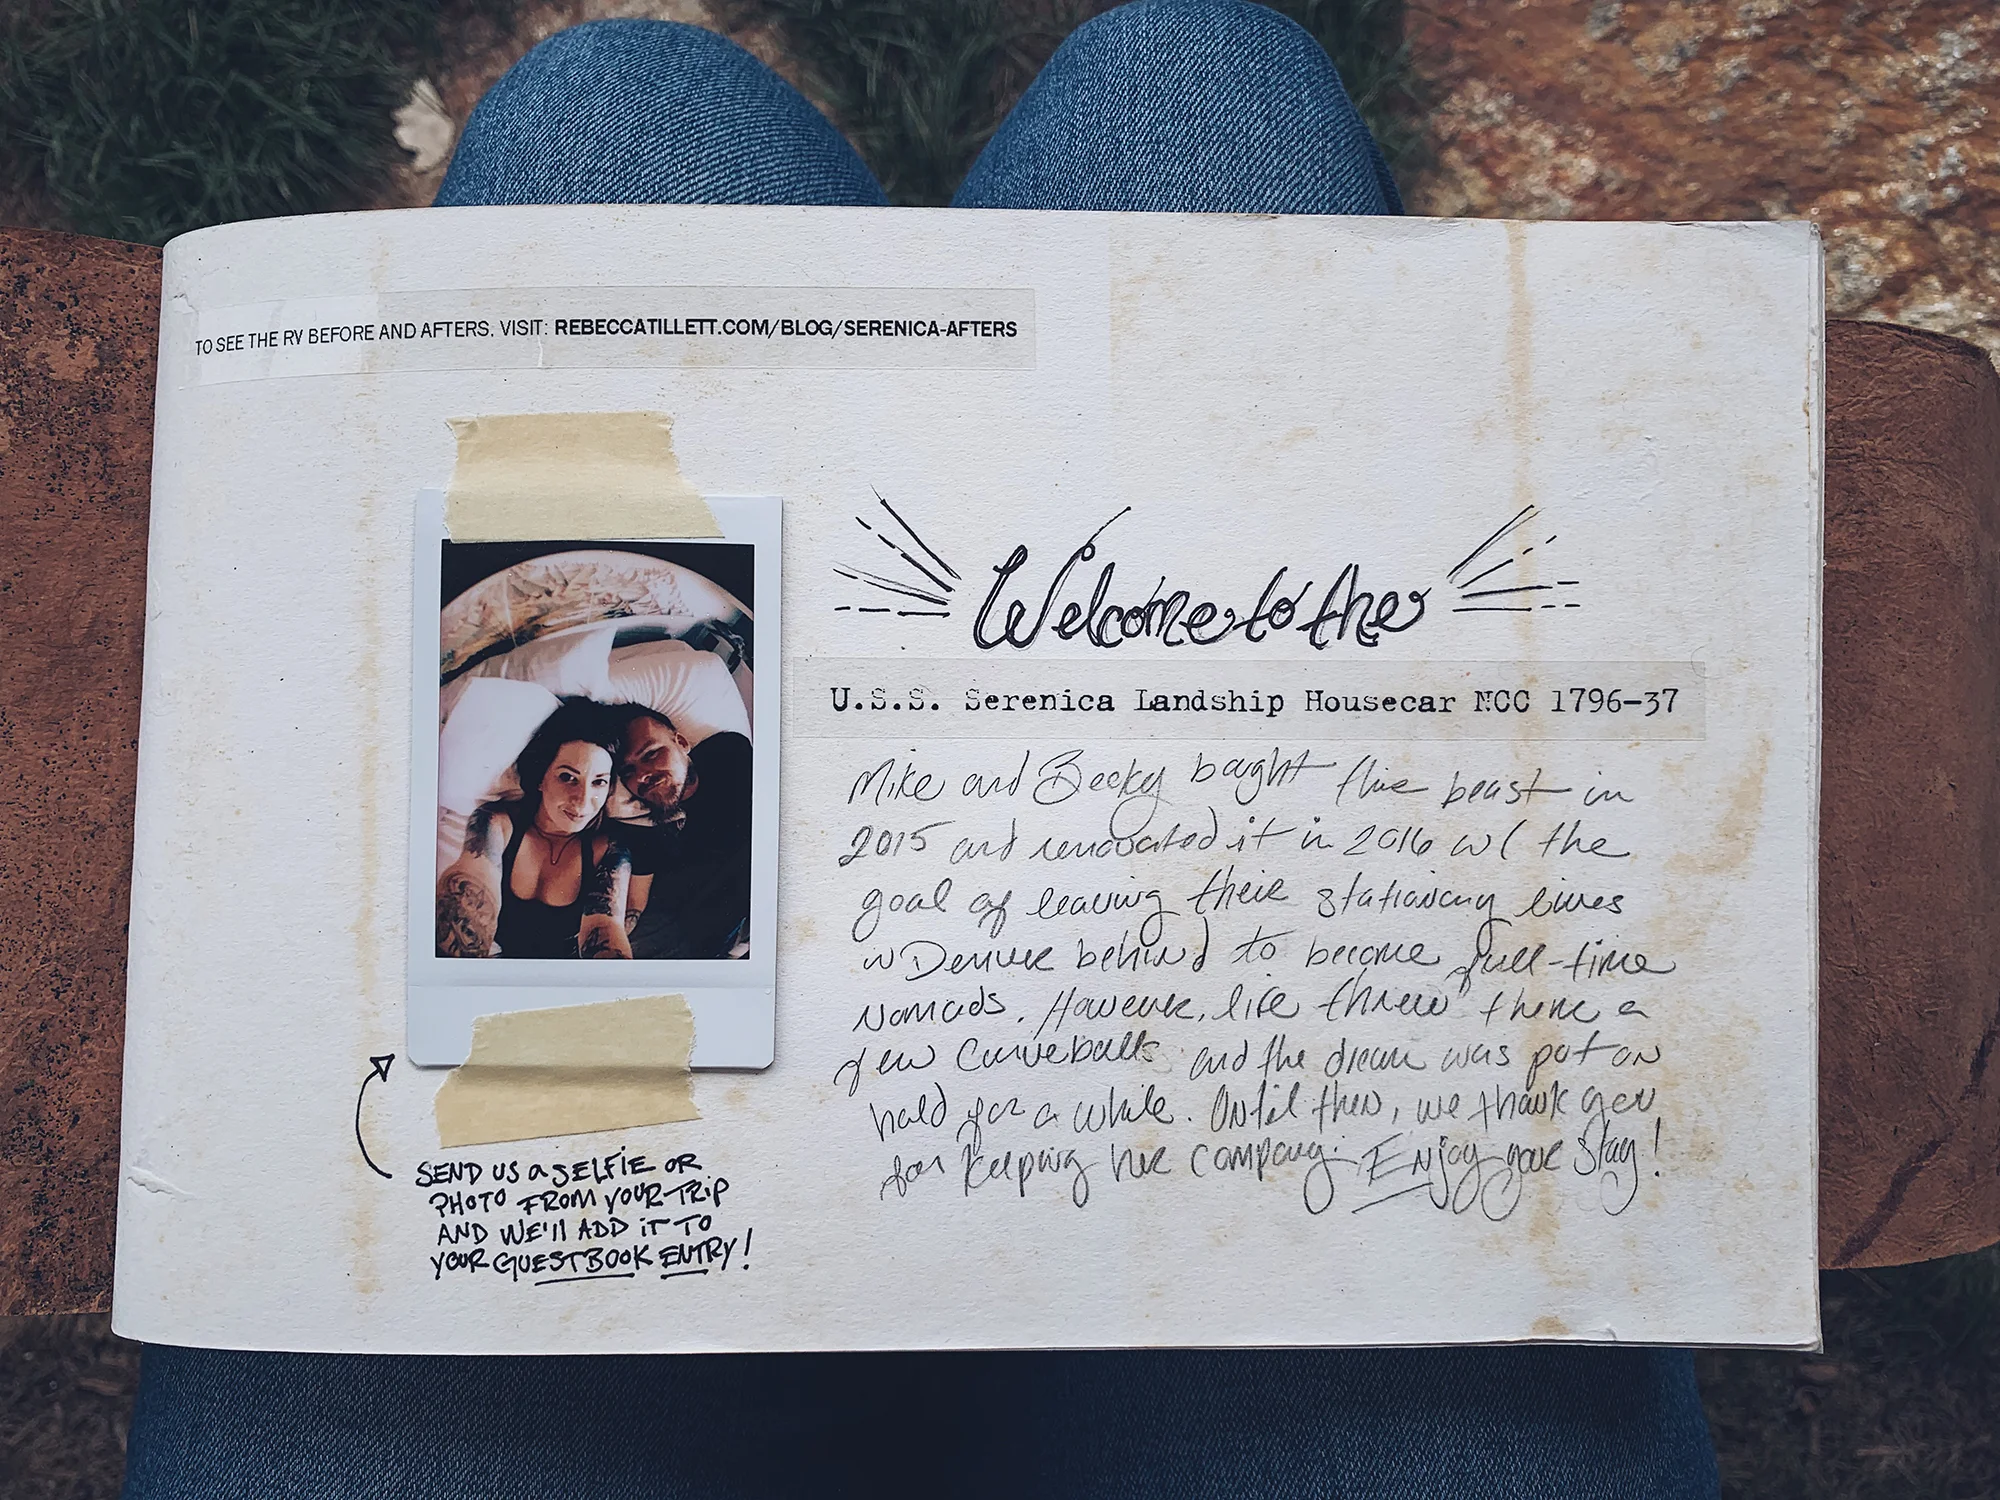 TO SEE THE RV BEFORE AND AFTERS, VISIT: REBECCATILLETT.COM/BLOG/SERENICA-AFTERS
Welcome to the
U.S.S. Serenica Landship Housecar NCC 1796-37
Mike and Becky bought this beast in
2015 and renovated it in 2016 w/ the
goal of leaving their stationary lives
in Denver behind to become full-time
nomads. However, life threw them a
few curveballs and the dream was put on
hold for a while. Until then, we thank you
for keeping her company. Enjoy your stay!
SEND US a SELFIE OR
PHOTO FROM YOUR TRIP
AND WE'll ADD iT TO
YOUR GUESTBOOK ENTRY!